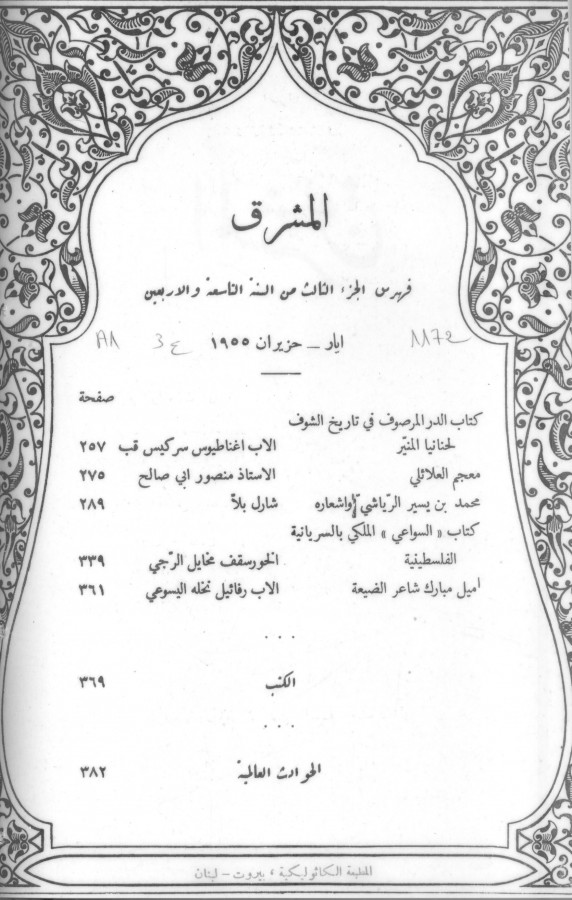 المشرق
فهرس الجزء الثالث من السنة التاسعة والاربعين
ايار – حزيران ١٩٥٥
A1 3ع 1172
صفحة
كتاب الدر المرصوف في تاريخ الشوف
لحنانيا المنيّر الاب اغناطيوس سركيس قب ٢٥٧
معجم العلائلي الاستاذ منصور ابي صالح ٢٧٥
محمد بن يسير الرّياشيّ واشعاره شارل بلّا ٢٨٩
كتاب «السواعي» الملكي بالسريانية
الفلسطينية الخورسقف مخايل الرّجي ٣٣٩
اميل مبارك شاعر الضيعة الاب رفائيل نخله اليسوعي ٣٦١
. . .
الكتب ٣٦٩
. . .
الحوادث العالمية ٣٨٢
المطبعة الكاثوليكية ، بيروت – لبنان